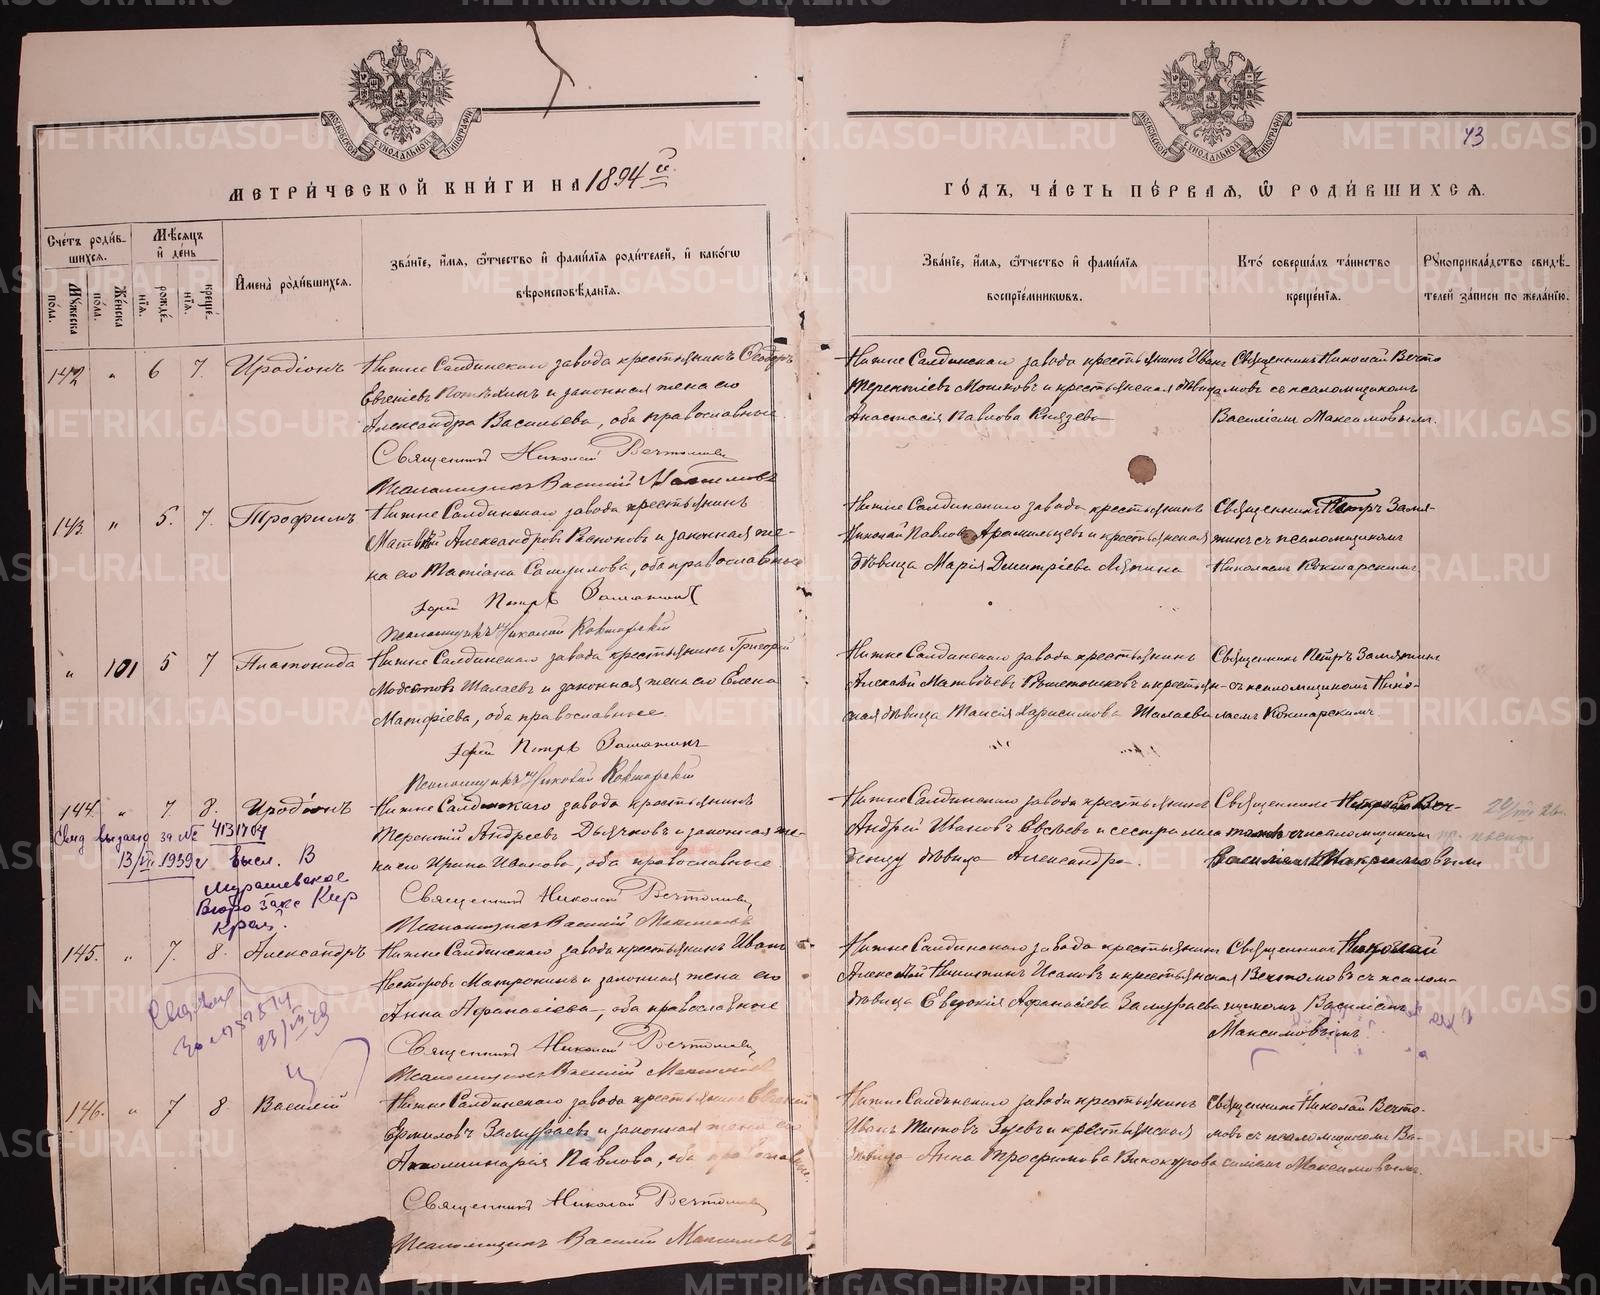 МЕТРИ́ЧЕСКОЙ КНИ́ГИ НА 1894й
ГО́ДЪ, ЧА́СТЬ ПЕ́РВАЯ, Ѿ РОДИ́ВШИХСѦ.
43
Сче́тъ роди́вшихся.
Мѣ́сяцъ и҆ де́нь
И҆мена̀ роди́вшихся.
Зва́нїе, и҆́мя, ѻ҆́тчество и҆ фами́лїя роди́телей, и҆ како́гѡ вѣроисповѣ́данїя.
Зва́нїе, и҆́мя, ѻ҆́тчество и҆ фами́лїя воспрїе́мниковъ.
Кто̀ соверша́лъ та́инство креще́нїя.
Рꙋкоприкла́дство свидѣ́телей за́писи по жела́нїю.
Мꙋ́жеска по́ла.
Же́нска по́ла.
рожде́нїя.
креще́нїя.
142 " 6 7. Иродіонъ
Нижне Салдинскаго завода крестьянинъ Ѳеодоръ
Евгеніевъ Потѣхинъ и законная жена его
Александра Васильева, оба православные
Священникъ Николай Вечтомовъ
Псаломщикъ Василій Максимовъ
Нижне Салдинскаго завода крестьянинъ Иванъ
Терентіевъ Мошковъ и крестьянская дѣвица
Анастасія Павлова Князева
Священникъ Николай Вечто
мовъ съ псаломщикомъ
Василіемъ Максимовымъ.
143. " 5. 7. Трофимъ
Нижне Салдинскаго завода крестьянинъ
Матвѣй Александровъ и законная же-
на его Татіана Самуилова, оба православные
Іерей Петръ Замятинъ
Псаломщикъ Николай Кокшарскій
Нижне Салдинскаго завода крестьянинъ
Николай Павловъ Арамильцевъ и крестьянская
дѣвица Марія Димитріева Ляпина
Священникъ Петръ Замя-
тинъ съ псаломщикомъ
Николаемъ Кокшарскимъ
" 101 5 7 Платонида
Нижне Салдинскаго завода крестьянинъ Григорій
Модестовъ Шалаевъ и законная жена его Елена
Матфіева, оба православные.
Іерей Петръ Замятинъ
Псаломщикъ Николай Кокшарскій
Нижне Салдинскаго завода крестьянинъ
Алексѣй Матвѣевъ Решетниковъ и крестьян-
ская дѣвица Таисія Харисимова Шалаева
Священникъ Петръ Замятинъ
съ псаломщикомъ Нико-
лаемъ Кокшарскимъ.
144. " 7. 8. Иродіонъ
Нижне Салдинскаго завода крестьянинъ
Терентій Андреевъ Дьячковъ и законная же-
на его Ирина Иванова, оба православные
Священникъ Николай Вечтомовъ
Псаломщикъ Василій Максимовъ
Свид выдано за № 4131704
13/VII 1939 г Высл. в
Мурашевское
Бюро Загс Кир
края.
Нижне Салдинскаго завода крестьянинъ
Андрей Ивановъ Евсѣевъ и сестра
дѣвица Александра.
Священникъ Николай Веч-
томовъ съ псаломщикомъ
Василіемъ Максимовымъ
145. " 7. 8. Александръ
Нижне Салдинскаго завода крестьянинъ Иванъ
Несторовъ Матронинъ и законная жена его
Анна Афанасіева, оба православные
Священникъ Николай Вечтомовъ
Псаломщикъ Василій Максимовъ
Нижне Салдинскаго завода крестьянинъ
Алексѣй Никитинъ Исаковъ и крестьянская
дѣвица Евдокія Афанасіева Замураева
Священникъ Николай
Вечтомовъ съ псалом-
щикомъ Василіемъ
Максимовымъ
146. " 7 8. Василій
Нижне Салдинскаго завода крестьянинъ Евгеній
Ермиловъ Замураевъ и законная жена его
Апполинарія Павлова, оба православные.
Священникъ Николай Вечтомовъ
Псаломщикъ Василій Максимовъ
Нижне Салдинскаго завода крестьянинъ
Иванъ Титовъ Зуевъ и крестьянская
дѣвица Анна Трофимова Винокурова
Священникъ Николай Вечто-
мовъ съ псаломщикомъ Ва-
силіемъ Максимовымъ.
METRIKI.GASO-URAL.RU